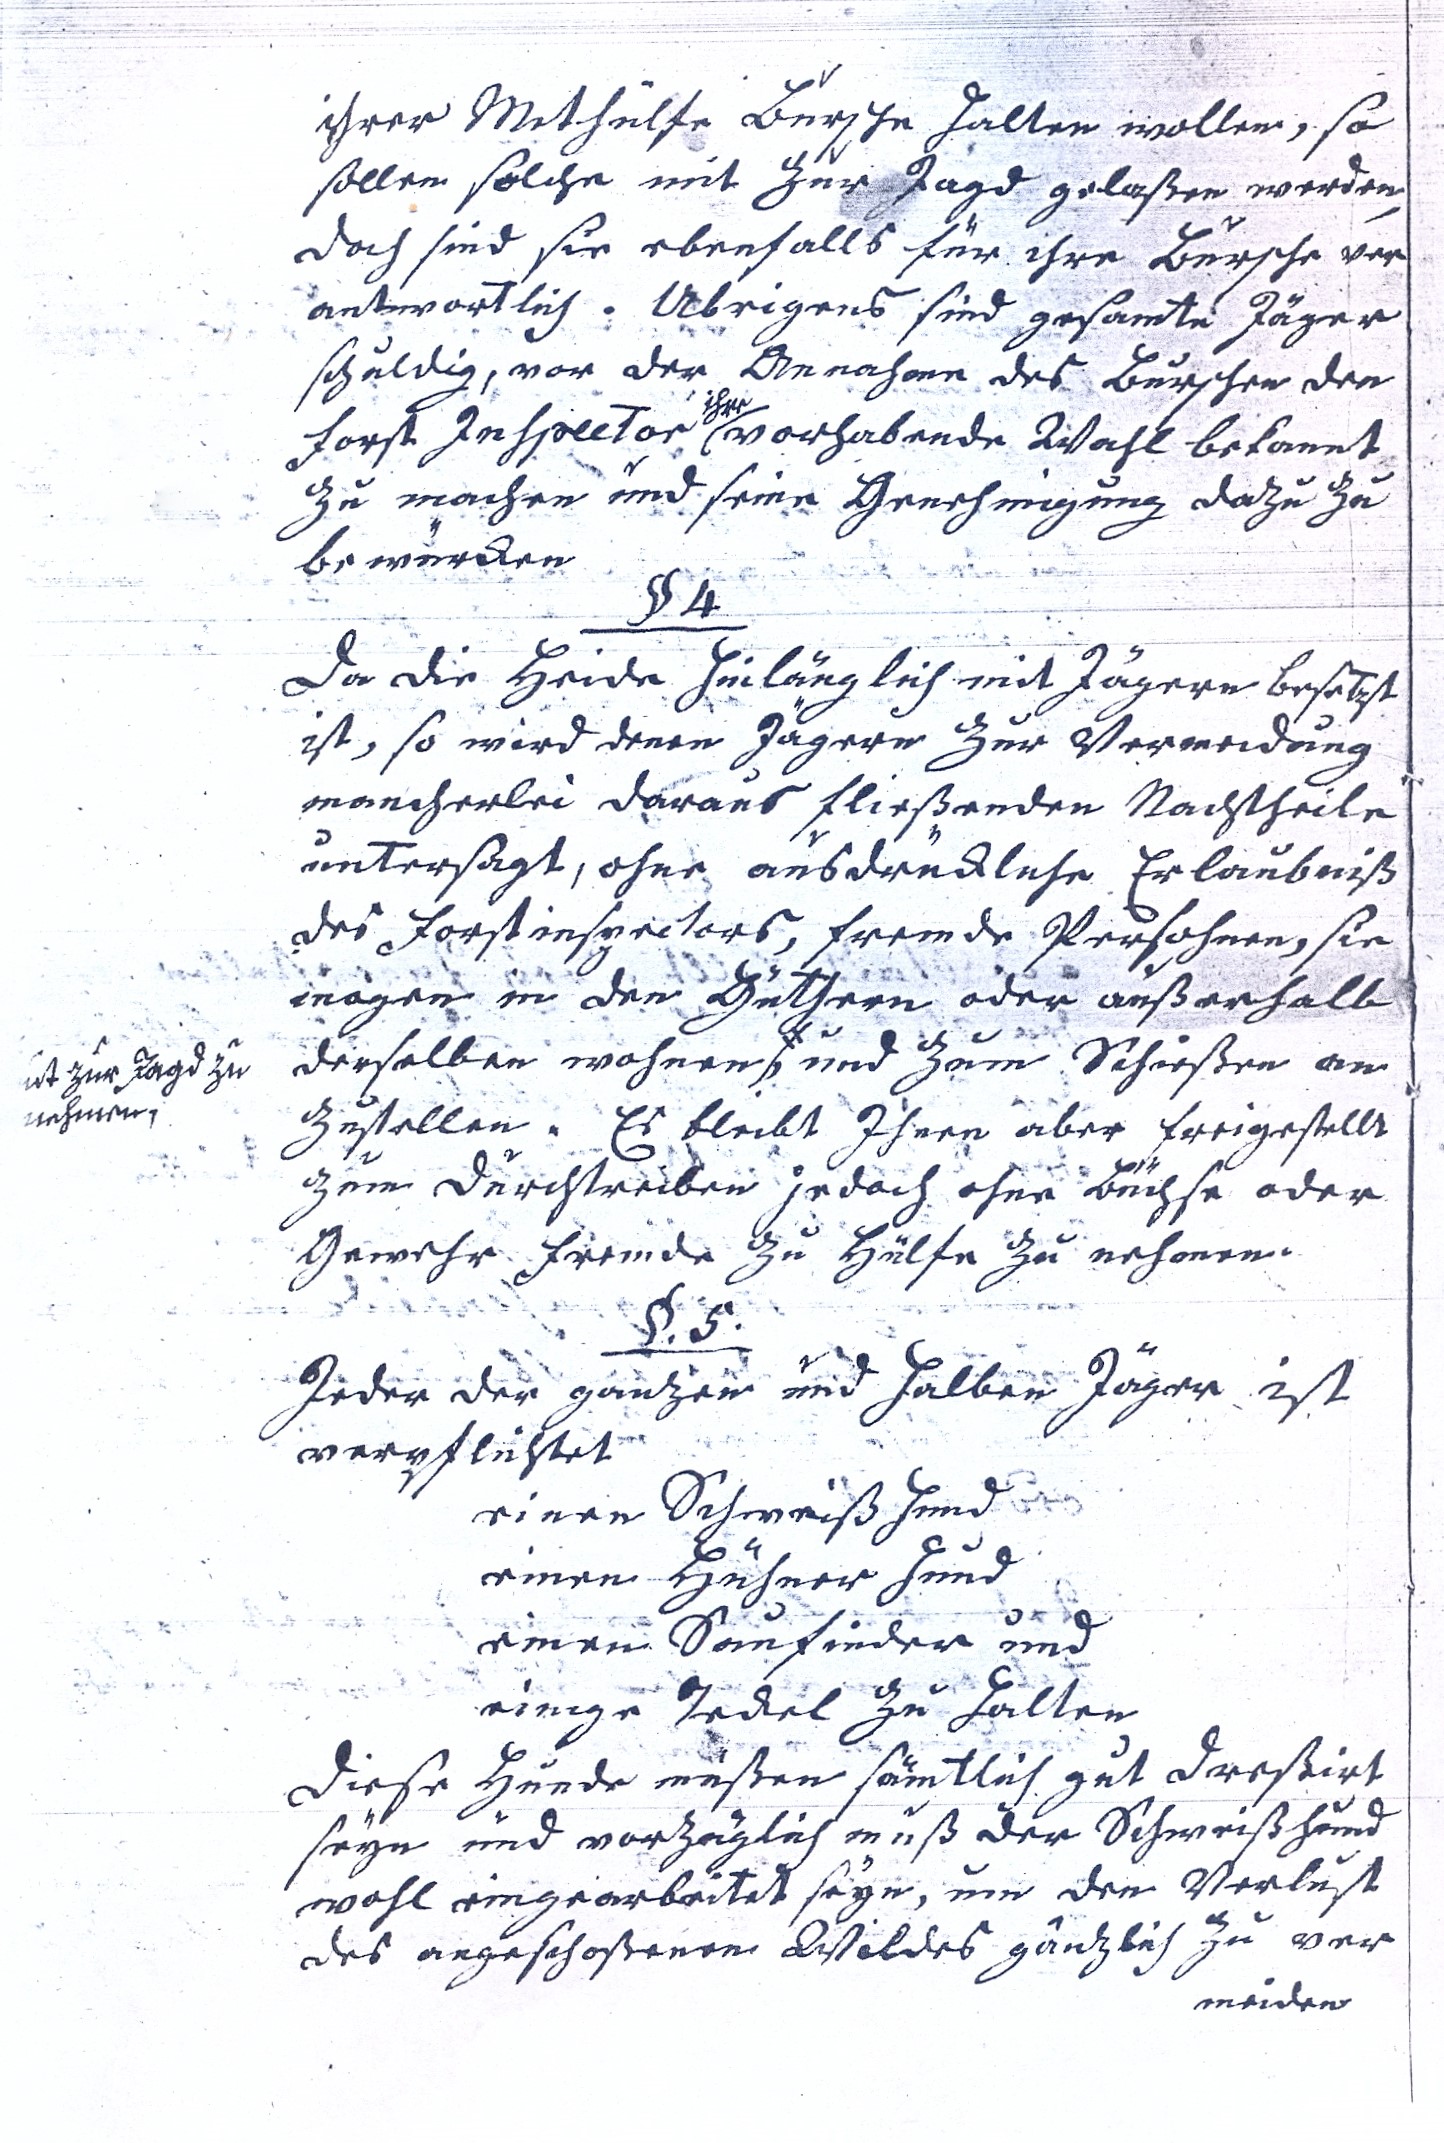 ihrer Mithülfe Bursche halten wollen, so
sollen solche mit zur Jagd gelaßen werden,
doch sind sie ebenfalls für ihre Bursche ver
antwortlich. Übrigens sind gesamte Jäger
schuldig, vor der Annahme des Burschen den
Forst Inspector ihre vorhabende Wahl bekannt
zu machen und seine Genehmigung dazu zu
bewürcken
§ 4
Da die Heide hinlänglich mit Jägern besetzt
ist, so wird denen Jägern zur Vermeidung
mancherlei daraus fließenden Nachtheile
untersagt, ohne ausdrückliche Erlaubniß
des Forstinspectors, fremde Persohnen, sie
mögen in den Güthern oder außerhalb
derselben wohnen, und zum Schießen an
mit zur Jagd zu
nehmen,
zustellen. Es bleibt Ihnen aber freigestellt
zum Durchtreiben jedoch ohne Büchse oder
Gewehr fremde zu Hülfe zu nehmen.
§. 5.
Jeder der gantzen und halben Jäger ist
verpflichtet
einen Schweiß hund
einen Hühner hund
einen Saufinder und
einige Teckel zu halten
Diese Hunde müßen sämtlich gut dreßirt
seyn und vorzüglich muß der Schweißhund
wohl eingearbeitet seyn, um den Verlust
des angeschoßenen Wildes gäntzlich zu ver
meiden